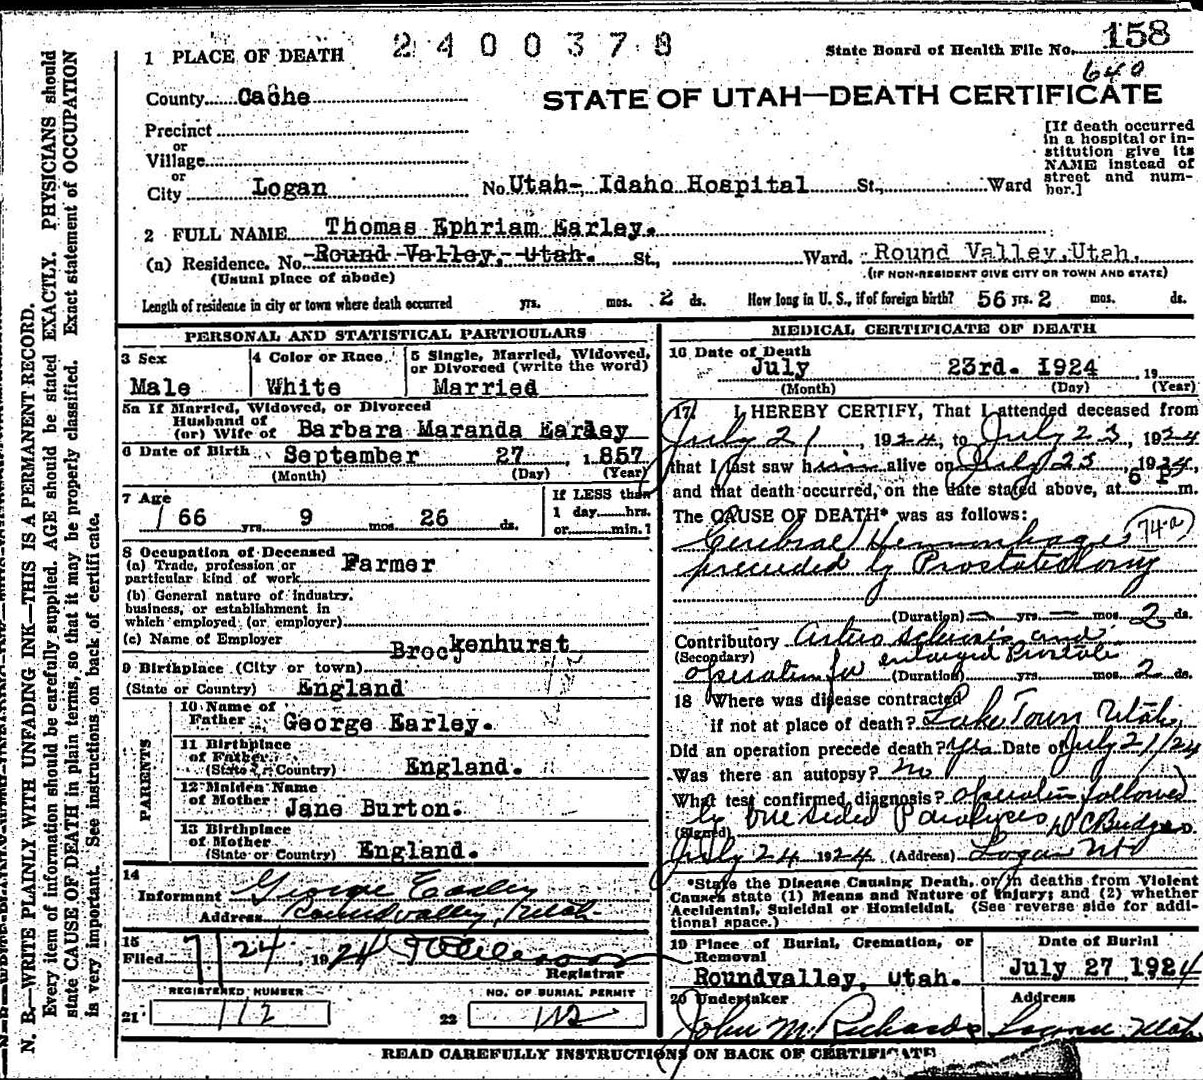 2400378
State Board of Health File No. 158
640
1 PLACE OF DEATH
STATE OF UTAH—DEATH CERTIFICATE
County Cache
Precinct
or
Village
or
City Logan No. Utah-, Idaho Hospital St., Ward
[If death occurred
in a hospital or in-
stitution give its
NAME instead of
street and num-
ber.]
2 FULL NAME Thomas Ephriam Earley.
(a) Residence. No. Round Valley, Utah. St., Ward. Round Valley, Utah.
(Usual place of abode) (IF NON-RESIDENT GIVE CITY OR TOWN AND STATE)
Length of residence in city or town where death occurred yrs. mos. 2 ds. How long in U. S., if of foreign birth? 56 yrs. 2 mos. ds.
PERSONAL AND STATISTICAL PARTICULARS
3 Sex
Male
4 Color or Race
White
5 Single, Married, Widowed,
or Divorced (write the word)
Married
5a If Married, Widowed, or Divorced
Husband of
(or) Wife of Barbara Maranda Earley
6 Date of Birth September 27, 1857
(Month) (Day) (Year)
7 Age
66 yrs. 9 mos. 26 ds.
If LESS than
1 day hrs.
or min.?
8 Occupation of Deceased
(a) Trade, profession or
particular kind of work Farmer
(b) General nature of industry,
business, or establishment in
which employed (or employer)
(c) Name of Employer
Brockenhurst
9 Birthplace (City or town)
(State or Country) England
PARENTS
10 Name of
Father George Earley.
11 Birthplace
of Father
(State or Country) England.
12 Maiden Name
of Mother Jane Burton.
13 Birthplace
of Mother
(State or Country) England.
14
Informant George Earley
Address Roundvalley, Utah
15
Filed 7/24, 1924
Registrar
REGISTERED NUMBER
21 112
NO. OF BURIAL PERMIT
22 112
MEDICAL CERTIFICATE OF DEATH
16 Date of Death
July 23rd. 1924 19
(Month) (Day) (Year)
17. I HEREBY CERTIFY, That I attended deceased from
July 21, 1924, to July 23, 1924
that I last saw him alive on July 23, 1924,
and that death occurred, on the date stated above, at 6 P m.
The CAUSE OF DEATH* was as follows:
Cerebral Hemorrhage 74a
preceeded by Prostatectomy
(Duration) yrs. mos. 2 ds.
Contributory Arterio sclerosis and
(Secondary) operation for enlarged Prostate
(Duration) yrs. mos. 2 ds.
18 Where was disease contracted
if not at place of death? Lake Town Utah
Did an operation precede death? Yes Date of July 21/24
Was there an autopsy? no
What test confirmed diagnosis? operation followed
by one sided Paralysis
(Signed) D C Budge M. D.
July 24 1924 (Address) Logan Ut
*State the Disease Causing Death, or in deaths from Violent
Causes state (1) Means and Nature of Injury; and (2) whether
Accidental, Suicidal or Homicidal. (See reverse side for addi-
tional space.)
19 Place of Burial, Cremation, or
Removal
Roundvalley, Utah.
Date of Burial
July 27, 1924
20 Undertaker Address
John M. Richards Logan Utah
READ CAREFULLY INSTRUCTIONS ON BACK OF CERTIFICATE
N. B.—WRITE PLAINLY WITH UNFADING INK—THIS IS A PERMANENT RECORD.
Every item of information should be carefully supplied. AGE should be stated EXACTLY. PHYSICIANS should
state CAUSE OF DEATH in plain terms, so that it may be properly classified. Exact statement of OCCUPATION
is very important. See instructions on back of certificate.